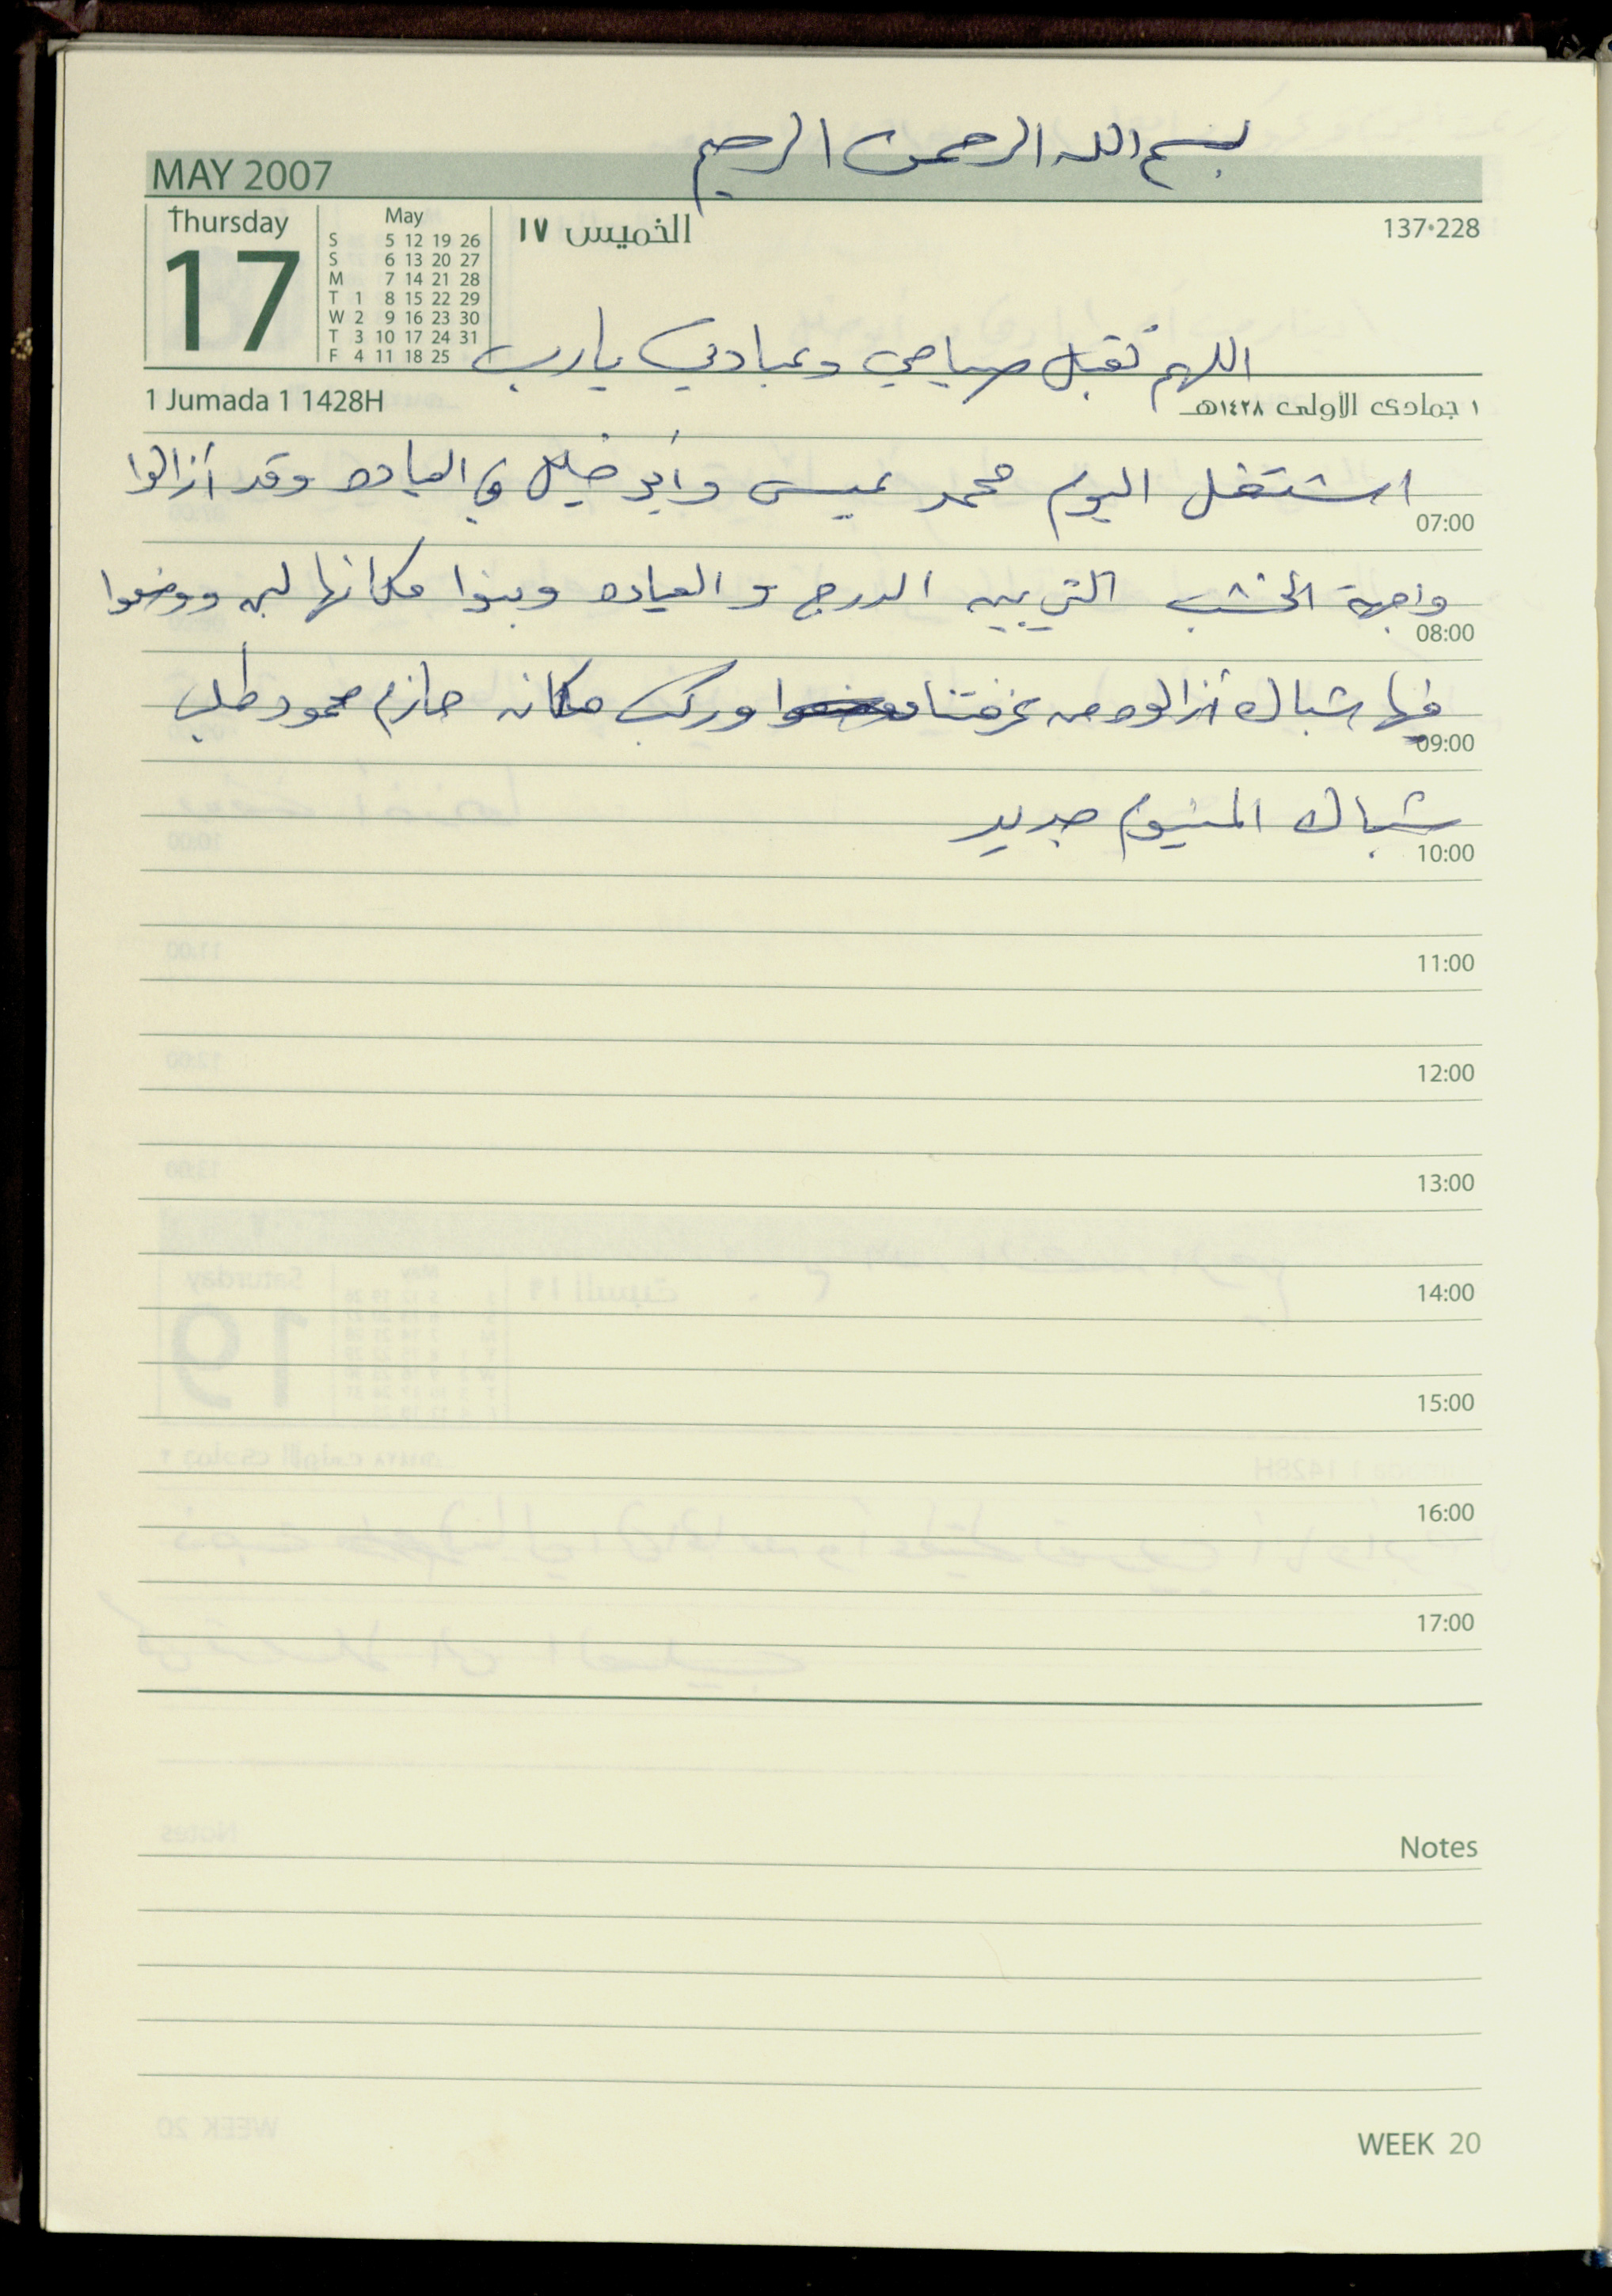 بسم الله الرحمن الرحيم
MAY 2007
Thursday
17
May
S 5 12 19 26
S 6 13 20 27
M 7 14 21 28
T 1 8 15 22 29
W 2 9 16 23 30
T 3 10 17 24 31
F 4 11 18 25
الخميس ١٧
137•228
اللهم تقبل صيامي وعبادتي يا رب
1 Jumada 1 1428H
١ جمادى الأولى ١٤٢٨هـ
اشتغل اليوم محمد عيسى وأبو خليل في العياده وقد أزالوا
07:00
واجهة الخشب التي بين الدرج والعياده وبنوا مكانها لبن ووضعوا
08:00
فيها شباك أزالوه من غرفتنا وركب مكانه حازم محمود طلب
09:00
شباك المنيوم جديد
10:00
11:00
12:00
13:00
14:00
15:00
16:00
17:00
Notes
WEEK 20